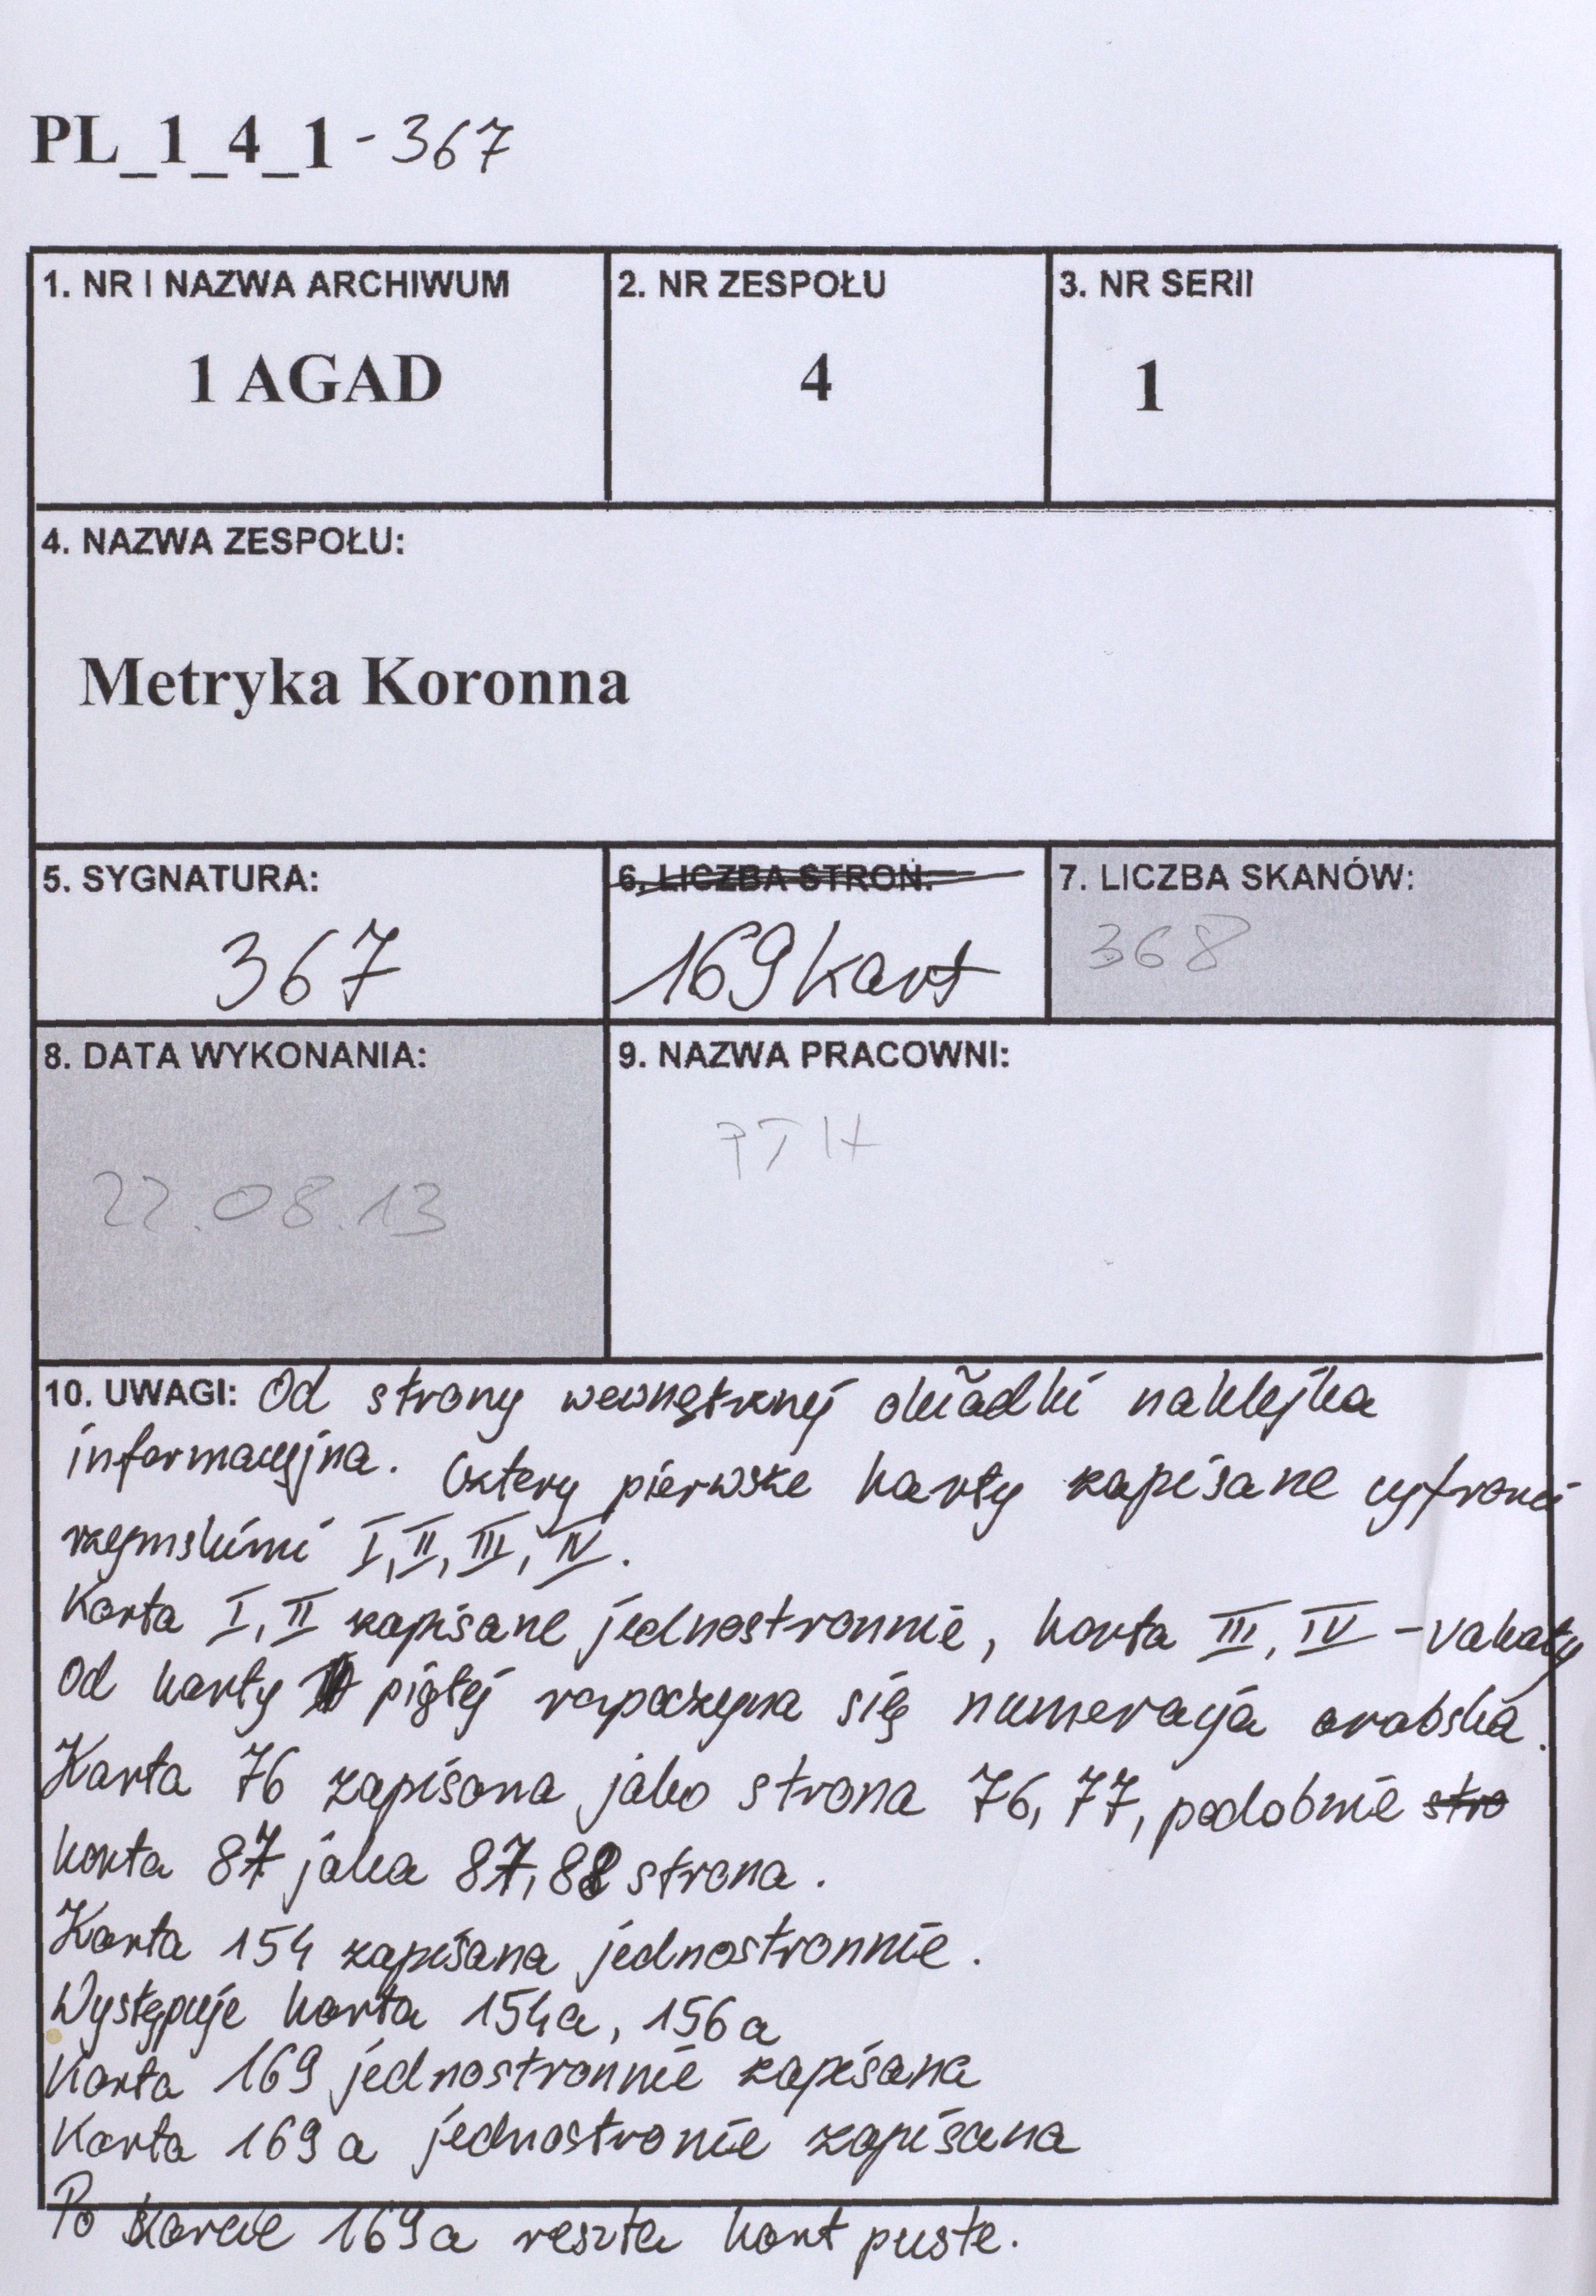 PL_1_4_1 - 367
1. NR I NAZWA ARCHIWUM
1 AGAD
2. NR ZESPOŁU
4
3. NR SERII
1
4. NAZWA ZESPOŁU:
Metryka Koronna
5. SYGNATURA:
367
6. LICZBA STRON:
169 kart
7. LICZBA SKANÓW:
368
8. DATA WYKONANIA:
22.08.13
9. NAZWA PRACOWNI:
10. UWAGI: Od strony wewnętrznej okładki naklejka
informacyjna. Cztery pierwsze karty zapisane cyframi
rzymskimi I, II, III, IV.
Karta I, II zapisane jednostronnie, karta III, IV - vakaty
Od karty piątej rozpoczyna się numeracja arabska.
Karta 76 zapisana jako strona 76, 77, podobnie stro
karta 87 jaka 87, 88 strona.
Karta 154 zapisana jednostronnie.
Występuje karta 154a, 156a
Karta 169 jednostronnie zapisana
Karta 169a jednostronie zapisana
Po karcie 169a reszta kart puste.